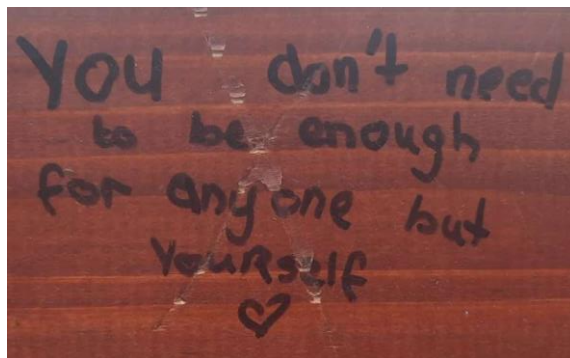 You don't need
to be enough
for anyone but
YouRself
♡